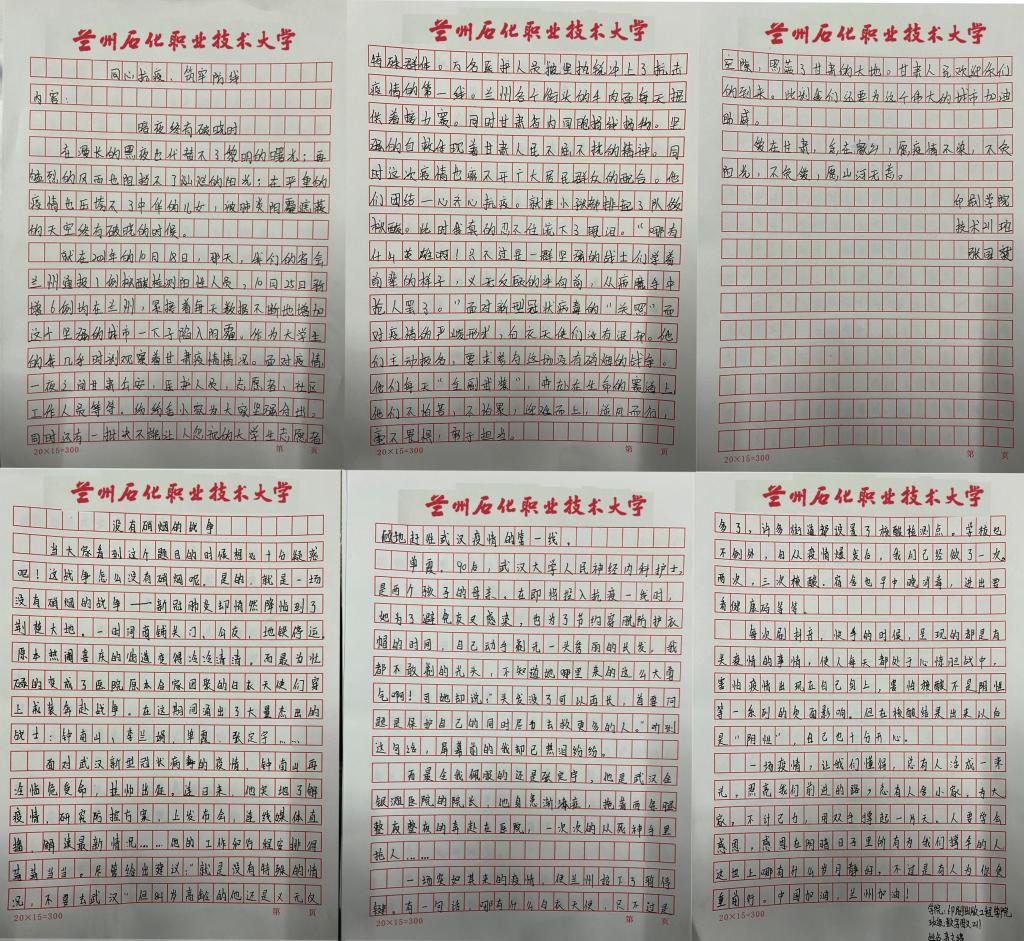 兰州石化职业技术大学
同心抗疫、筑牢防线
内容:
暗夜终有破晓时
在漫长的黑夜也代替不了黎明的曙光;再
猛烈的风雨也阻挡不了灿烂的阳光;在严重的
疫情也压垮不了中华的儿女,被肺炎阴霾遮蔽
的天空终有破晓的时候。
就在2021年的10月18日,那天,我们的省会
兰州通报1例核酸检测阳性人员,10月25日新
增6例均在兰州,紧接着每天数据不断地增加
这个坚强的城市一下子陷入阴霾。作为大学生
的每几乎时刻观察着甘肃疫情情况。面对疫情
一夜之间甘肃各市,医护人员,志愿者,社区
工作人员等等,纷纷舍小家为大家坚强付出。
同时还有一批决不能让人忽视的大学生志愿者
20×15=300 第 页
兰州石化职业技术大学
特殊群体。万名医护人员披坚执锐冲上了抗击
疫情的第一线。兰州各个街头的牛肉面每天提
供着接力赛。同时甘肃省内同胞捐钱捐物。坚
强的自救体现着甘肃人民不屈不挠的精神。同
时这次疫情也离不开广大居民群众的配合。他
们团结一心齐心抗疫。就连小孩都排起了队做
核酸。此时我真的忍不住流下了眼泪。“哪有
什么英雄啊!只不过是一群坚强的战士们学着
前辈的样子,义无反顾的冲向前,从病魔手中
抢人罢了。”面对新型冠状病毒的“关照”面
对疫情的严峻形式,白衣天使们没有退却。他
们主动报名,要求参与这场没有硝烟的战争。
他们每天“全副武装”,奔赴在生命的赛道上
他们不怕苦,不怕累,迎难而上,逆风而行,
毫不畏惧,勇于担当。
20×15=300 第 页
兰州石化职业技术大学
空隙,照亮了甘肃的大地。甘肃人民欢迎你们
的到来。此刻我们还要为这个伟大的城市加油
助威。
爱在甘肃,乡在家乡,愿疫情不染,不负
阳光,不负爱,愿山河无恙。
印刷学院
技术211班
张国
第 页
兰州石化职业技术大学
没有硝烟的战争
当大家看到这个题目的时候想必十分疑惑
吧!这战争怎么没有硝烟呢,是的,就是一场
没有硝烟的战争——新冠肺炎却悄然降临到了
荆楚大地。一时间商铺关门,公交,地铁停运
原本热闹喜庆的街道变得冷冷清清。而最为忙
碌的变成了医院原本合家团聚的白衣天使们穿
上戎装奔赴战争。在这期间涌出了大量杰出的
战士:钟南山、李兰娟,单霞,张定宇……
面对武汉新型冠状病毒的疫情,钟南山再
次临危受命,挂帅出征。连日来,他实地了解
疫情,研究防控方案、上发布会,连线媒体直
播、解读最新情况……他的工作和行程安排得
满满当当。尽管给出建议:“就是没有特殊的情
况,不要去武汉”但84岁高龄的他还是义无反
20×15=300 第 页
兰州石化职业技术大学
顾地赶往武汉疫情的第一线。
单霞,90后,武汉大学人民神经内科护士,
是两个孩子的母亲。在即将投入抗疫一线时,
她为了避免交叉感染,也为了节约穿戴防护衣
帽的时间,自己动手剃光一头秀丽的长发,我
都不敢剃的光头,不知道她哪里来的这么大勇
气啊!可她却说:“头发没了可以再长,首要问
题是保护自己的同时尽力去救更多的人。”听到
这句话,屏幕前的我却已热泪纷纷。
而最令我佩服的还是张定宇,他是武汉金
银潭医院的院长,他自患渐冻症,拖着两条腿
整夜整夜的奔赴在医院,一次次的从死神手里
抢人……
一场突如其来的疫情,使兰州按下了暂停
键。有一句话,哪有什么白衣天使,只不过是
20×15=300 第 页
兰州石化职业技术大学
多了,许多街道都设置了核酸检测点。学校也
不例外,自从疫情爆发后,我们已经做了一次。
两次,三次核酸。宿舍也早中晚消毒,进出要
看健康码等等。
每次刷抖音,快手的时候,呈现的都是有
关疫情的事情,使人每天都处于心惊胆战中,
害怕疫情出现在自己身上,害怕核酸不是阴性
等一系列的负面影响。但在核酸结果出来以后
是“阴性”,自己也十分开心。
一场疫情,让我们懂得,总有人活成一束
光,照亮我们前进的路;总有人舍小家,为大
家。不计己力,用双手撑起一片天。人要学会
感恩,感恩在阴暗日子里所有为我们撑伞的人
这世上哪有什么岁月静好,不过是有人为你负
重前行。中国加油,兰州加油!
20×15=300
学院:印刷出版工程学院
班级:数字图文211